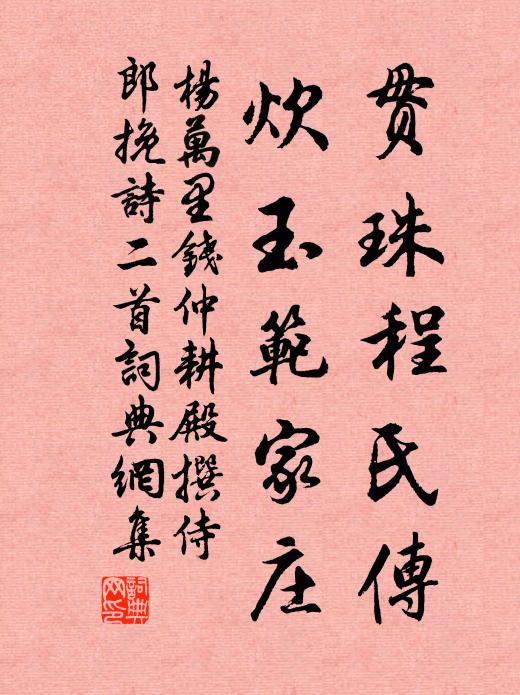 貫珠程氏傳
炊玉範家庄
楊萬里錢仲耕殿撰侍
郎挽詩二首詞典網集
詞典
網印